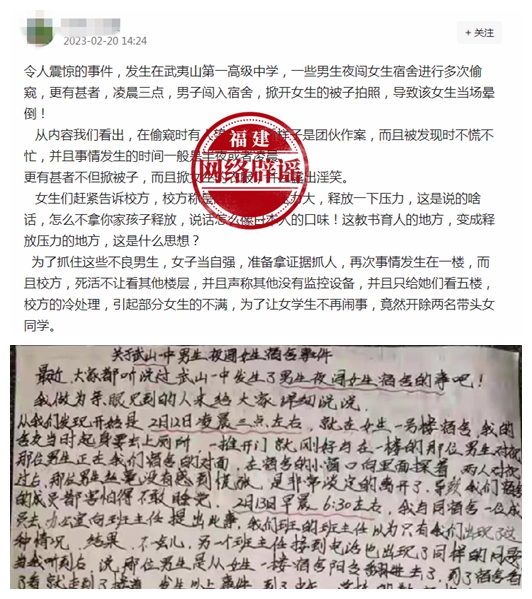 2023-02-20 14:24
+ 关注
令人震惊的事件，发生在武夷山第一高级中学，一些男生夜闯女生宿舍进行多次偷
窥，更有甚者，凌晨三点，男子闯入宿舍，掀开女生的被子拍照，导致该女生当场晕
倒！
从内容我们看出，在偷窥时有人 样子是团伙作案，而且被发现时不慌不
忙，并且事情发生的时间一般是半夜或者凌晨。
更有甚者不但掀被子，而且掀女 出淫笑。
福建
网络辟谣
女生们赶紧告诉校方，校方称 力大，释放一下压力，这是说的啥
话，怎么不拿你家孩子释放，说话怎么像日本人的口味！这教书育人的地方，变成释
放压力的地方，这是什么思想？
为了抓住这些不良男生，女子当自强，准备拿证据抓人，再次事情发生在一楼，而
且校方，死活不让看其他楼层，并且声称其他没有监控设备，并且只给她们看五楼，
校方的冷处理，引起部分女生的不满，为了让女学生不再闹事，竟然开除两名带头女
同学。
关于武山一中男生夜闯女生宿舍事件
最近，大家都听说过武山一中发生了男生夜闯女生宿舍的事吧！
我做为亲眼见到的人来给大家详细说说。
从我们发现开始是2月12日凌晨三点左右，就在女生一号楼宿舍，我的
舍友当时起身要去上厕所，一推开门就刚好与在一楼的那位男生对视
那位男生正在我们宿舍的对面，在宿舍的小窗口向里面探着，两人对视
过后，那位男生丝毫没有感到慌张，是非常淡定的离开了，导致我们宿舍
的成员都害怕得不敢睡觉。2月13日早晨6:30左右，我与同宿舍一位成
员去办公室向班主任提出此事，我们班的班主任以为只有我们出现了这
种情况，结果，不一会儿，另一个班主任接到电话也出现了同样的问题
当我听到后，说，那位男生是从女生一楼宿舍阳台翻